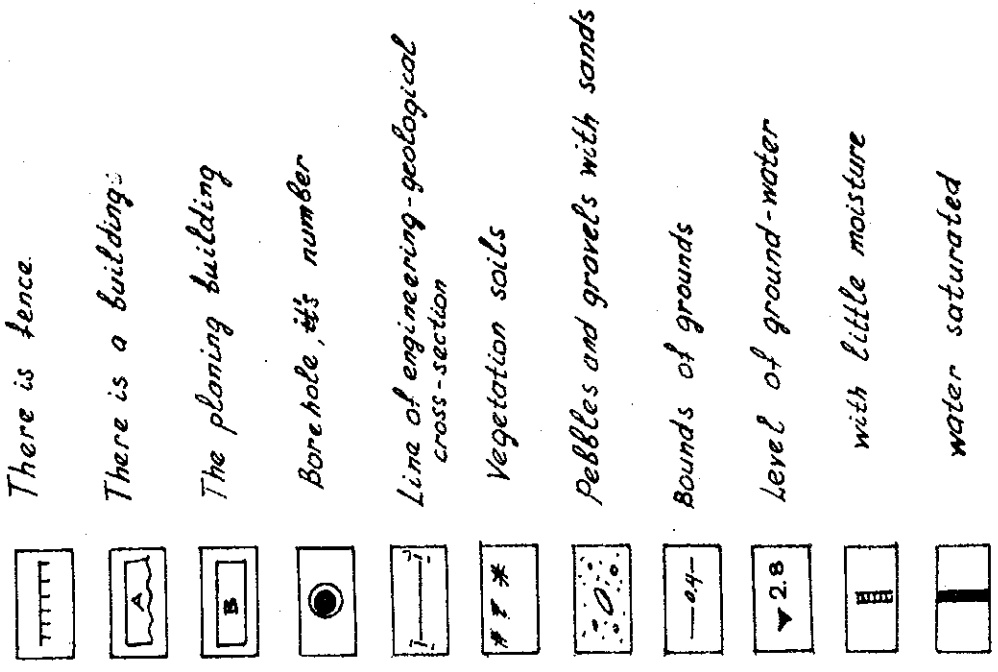 There is fence.
A
There is a buildings
B
The planing building
Borehole, it's number
Line of engineering-geological
cross-section
Vegetation soils
Pebbles and gravels with sands
0.4
Bounds of grounds
2.8
Level of ground-water
with little moisture
water saturated